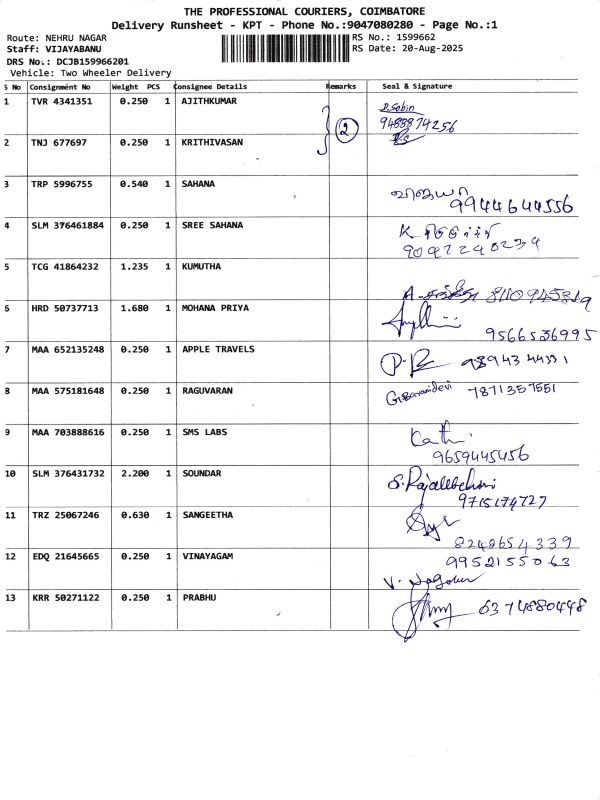 THE PROFESSIONAL COURIERS, COIMBATORE
Delivery Runsheet - KPT - Phone No.:9047080280 - Page No.:1
Route: NEHRU NAGAR RS No.: 1599662
Staff: VIJAYABANU RS Date: 20-Aug-2025
DRS No.: DCJB159966201
Vehicle: Two Wheeler Delivery
S No Consignment No Weight PCS Consignee Details Remarks Seal & Signature
1 TVR 4341351 0.250 1 AJITHKUMAR 2 9488874256
2 TNJ 677697 0.250 1 KRITHIVASAN
3 TRP 5996755 0.540 1 SAHANA 9944644556
4 SLM 376461884 0.250 1 SREE SAHANA K 9047240234
5 TCG 41864232 1.235 1 KUMUTHA A. 8110945819
6 HRD 50737713 1.680 1 MOHANA PRIYA 9566536995
7 MAA 652135248 0.250 1 APPLE TRAVELS
8 MAA 575181648 0.250 1 RAGUVARAN 7871357551
9 MAA 703888616 0.250 1 SMS LABS 9659445456
10 SLM 376431732 2.200 1 SOUNDAR 9715174727
11 TRZ 25067246 0.630 1 SANGEETHA 8248654339
12 EDQ 21645665 0.250 1 VINAYAGAM 9952155063
13 KRR 50271122 0.250 1 PRABHU 6374880448